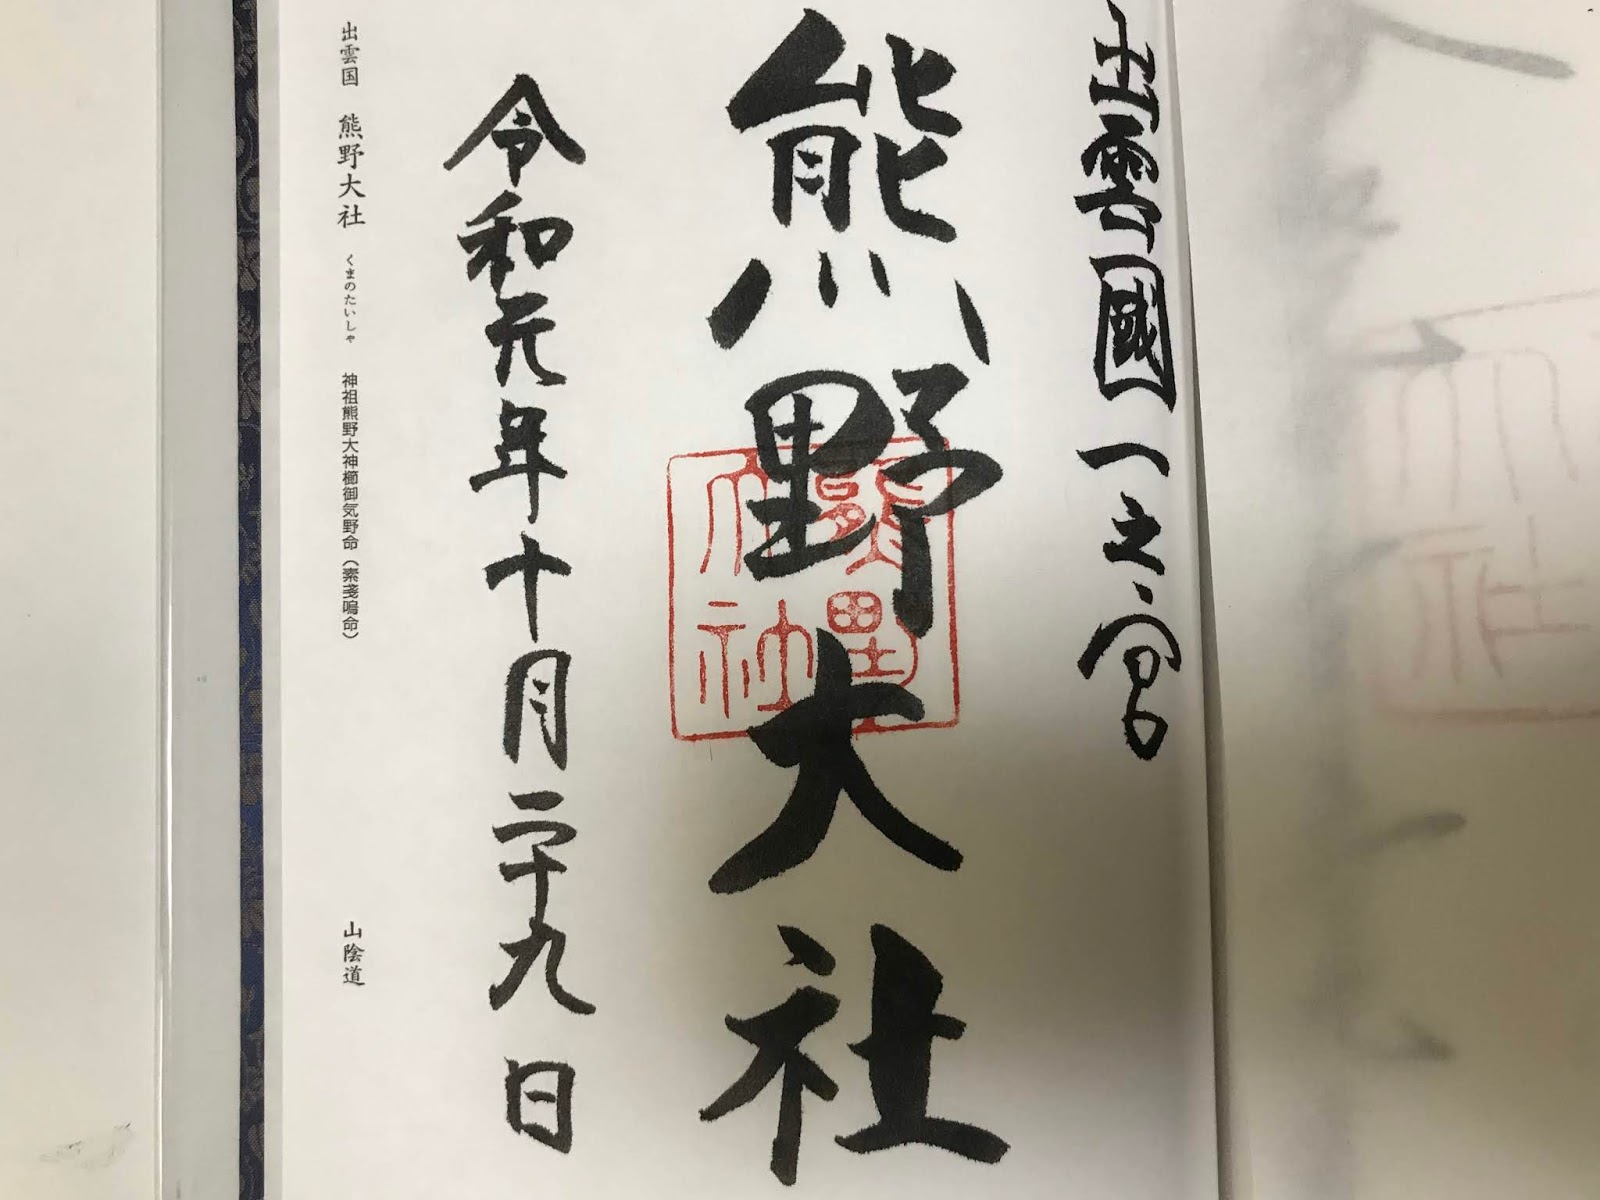 出雲國一之宮
熊野大社
熊野
大社
令和元年十月二十九日
出雲国 熊野大社 くまのたいしゃ 神祖熊野大神櫛御気野命(素戔嗚命) 山陰道